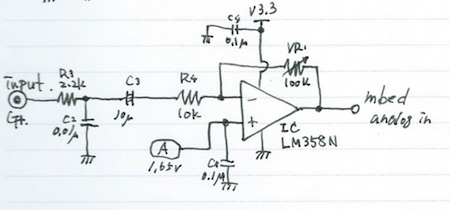 C5
0.1μ
V3.3
VR1
100k
Input
Gt.
R3
2.2k
C3
10μ
R4
10k
C2
0.01μ
A
1.65V
C4
0.1μ
−
+
IC
LM358N
mbed
analog in